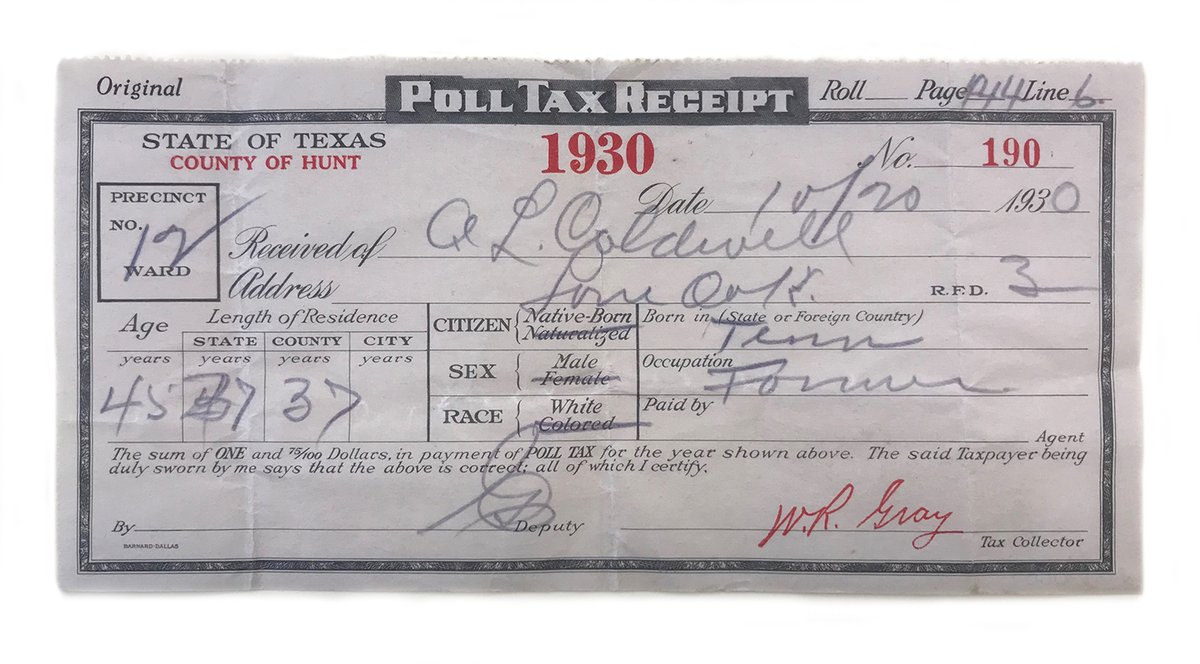 Original POLL TAX RECEIPT Roll Page 144 Line 6.
STATE OF TEXAS 1930 No. 190
COUNTY OF HUNT
PRECINCT Date 10/20 1930
NO. 12
WARD
Received of A L. Coldwell
Address Lone Oak. R.F.D. 3
Age Length of Residence CITIZEN { Native-Born Born in (State or Foreign Country)
Naturalized Tenn
STATE COUNTY CITY
years years years years SEX { Male Occupation
Female Farmer
45 37 37 RACE { White Paid by
Colored
Agent
The sum of ONE and 75/100 Dollars, in payment of POLL TAX for the year shown above. The said Taxpayer being
duly sworn by me says that the above is correct; all of which I certify.
By Deputy W.R. Gray
BARNARD-DALLAS Tax Collector